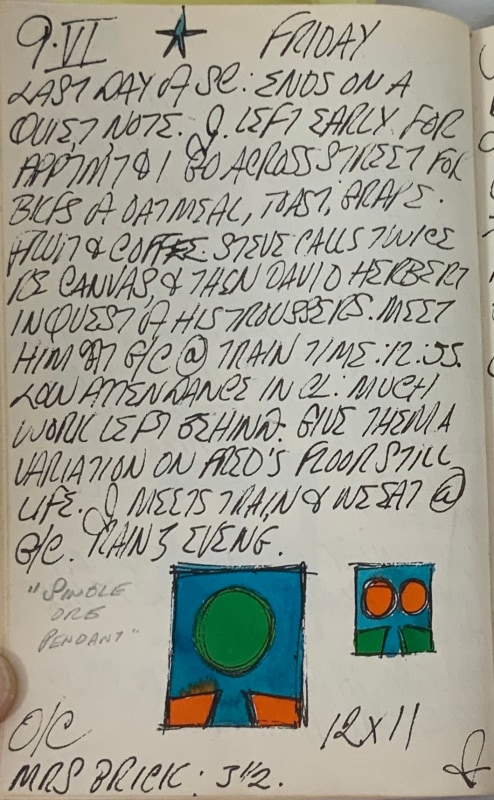 9·VI FRIDAY
LAST DAY of SC: ENDS ON A
QUIET NOTE. J. LEFT EARLY FOR
APPTMT & I GO ACROSS STREET FOR
BKFS of OATMEAL, TOAST, GRAPE-
FRUIT & COFFEE. STEVE CALLS TWICE
RE CANVAS, & THEN DAVID HERBERT
IN QUEST of HIS TROUSSERS. MEET
HIM AT G/C @ TRAIN TIME: 12:55.
LOW ATTENDANCE IN CL: MUCH
WORK LEFT BEHIND. GIVE THEM A
VARIATION ON FRED'S FLOOR STILL
LIFE. J MEETS TRAIN & WE EAT @
G/C. RAINS EVENG.
"SINGLE
ORE
PENDANT"
O/C 12x11
MRS BRICK: 3½.